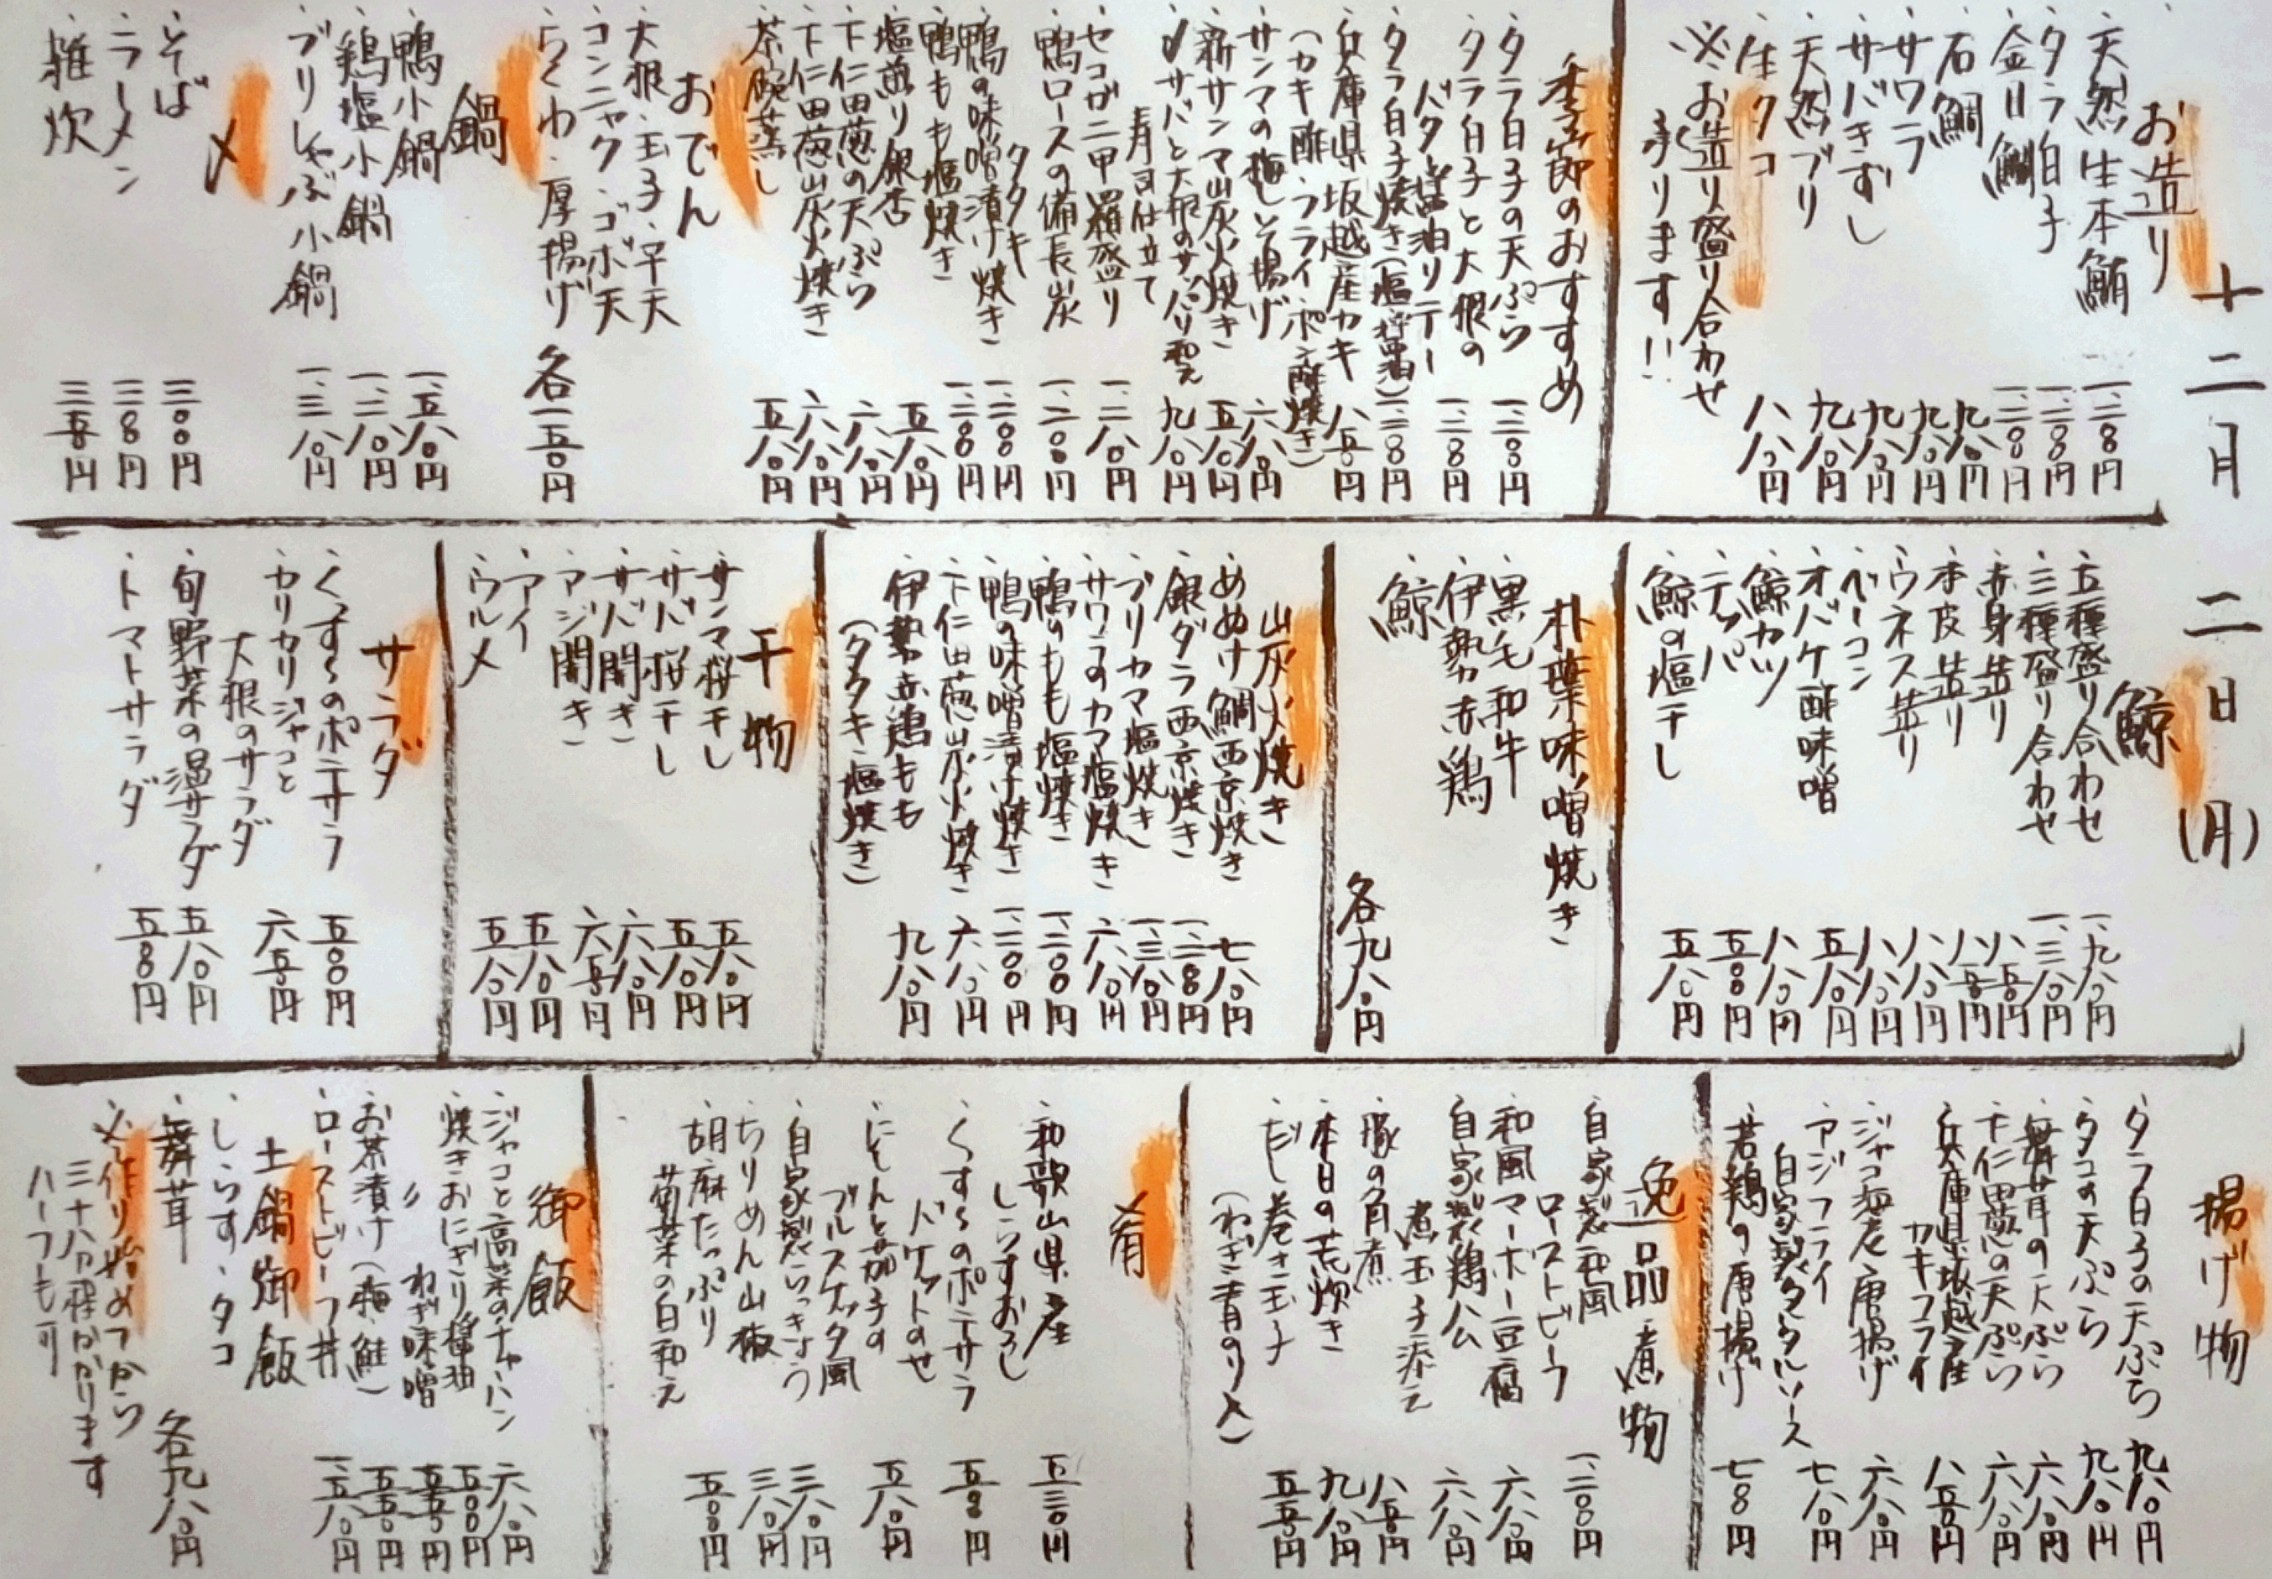 十二月二日(月)
お造り
・天然生本鮪 一、二八〇円
・タラ白子 一、二八〇円
・金目鯛 一、二八〇円
・石鯛 九八〇円
・サワラ 九八〇円
・サバきずし 九八〇円
・天然ブリ 九八〇円
・生タコ 八八〇円
※お造り盛り合わせ
承ります!!
季節のおすすめ
・タラ白子の天ぷら
・タラ白子と大根の
バタ醤油ソテー
・タラ白子焼き(塩・醤油)
・兵庫県坂越産カキ 八五〇円
(カキ酢・フライ・ポン酢焼き)
・サンマの梅しそ揚げ 六八〇円
・新サンマ山炭火焼き 五八〇円
・〆サバと大根のサッパリ和え 九八〇円
寿司仕立て
・セコガニ甲羅盛り 一、二八〇円
・鴨ロースの備長炭
タタキ 一、二〇〇円
・鴨の味噌漬け焼き 一、二〇〇円
・鴨もも塩焼き 一、二〇〇円
・塩煎り銀杏 五八〇円
・下仁田葱の天ぷら 六八〇円
・下仁田葱山炭火焼き 六八〇円
・茶碗蒸し 五八〇円
おでん
・大根・玉子・平天
・コンニャク・ゴボ天
・ちくわ・厚揚げ 各一五〇円
鍋
・鴨小鍋 一、五八〇円
・鶏塩小鍋 一、二八〇円
・ブリしゃぶ小鍋 一、三八〇円
〆
・そば 三〇〇円
・ラーメン
・雑炊 三五〇円
鯨
・五種盛り合わせ 一、九八〇円
・三種盛り合わせ 一、三八〇円
・赤身造り 八五〇円
・本皮造り 八五〇円
・ウネス造り 八八〇円
・ベーコン 八八〇円
・オバケ酢味噌 五八〇円
・鯨カツ 八八〇円
・テッパ 五〇〇円
・鯨の塩干し 五八〇円
朴葉味噌焼き
・黒毛和牛
・伊勢赤鶏
・鯨
各九八〇円
山炭火焼き
・めぬけ鯛西京焼き 七八〇円
・銀ダラ西京焼き 一、二八〇円
・ブリカマ塩焼き 一、三八〇円
・サワラのカマ塩焼き 六八〇円
・鴨のもも塩焼き 一、二〇〇円
・鴨の味噌漬け焼き 一、二〇〇円
・下仁田葱山炭火焼き 六八〇円
・伊勢赤鶏もも 九八〇円
(タタキ・塩焼き)
干物
・サンマ桜干し 五八〇円
・サバ桜干し 五八〇円
・サバ開き 六八〇円
・アジ開き 六五〇円
・アイ 五八〇円
・ウルメ 五八〇円
サラダ
・くずしのポテサラ 五〇〇円
・カリカリジャコと
大根のサラダ 六五〇円
・旬野菜の温サラダ 五八〇円
・トマトサラダ
揚げ物
・タラ白子の天ぷら 九八〇円
・タコの天ぷら 九八〇円
・舞茸の天ぷら 六八〇円
・下仁田葱の天ぷら 六八〇円
・兵庫県坂越産
カキフライ 八五〇円
・ジャコ海老唐揚げ 六八〇円
・アジフライ
自家製タルタルソース 七八〇円
・若鶏の唐揚げ 七八〇円
逸品・煮物
・自家製和風
ローストビーフ 一、二〇〇円
・和風マーボー豆腐 六八〇円
・自家製鶏公
煮玉子添え 六八〇円
・豚の角煮 八五〇円
・本日の荒炊き 九八〇円
・だし巻き玉子 五五〇円
(ねぎ・青のり入)
肴
・和歌山県産
しらすおろし
・くずしのポテサラ
バケットのせ
・にしんと茄子の
ブルスケッタ風 五八〇円
・自家製らっきょう 三八〇円
・ちりめん山椒 三八〇円
・胡麻たっぷり
菊菜の白和え 五〇〇円
御飯
・ジャコと高菜のチャーハン 六八〇円
・焼きおにぎり醤油 五〇〇円
・〃 ねぎ味噌 五五〇円
・お茶漬け(梅・鮭) 五五〇円
・ローストビーフ丼 一、五八〇円
土鍋御飯
・しらす・タコ
・舞茸 各九八〇円
※作り始めてから
三十八分程かかります
ハーフも可